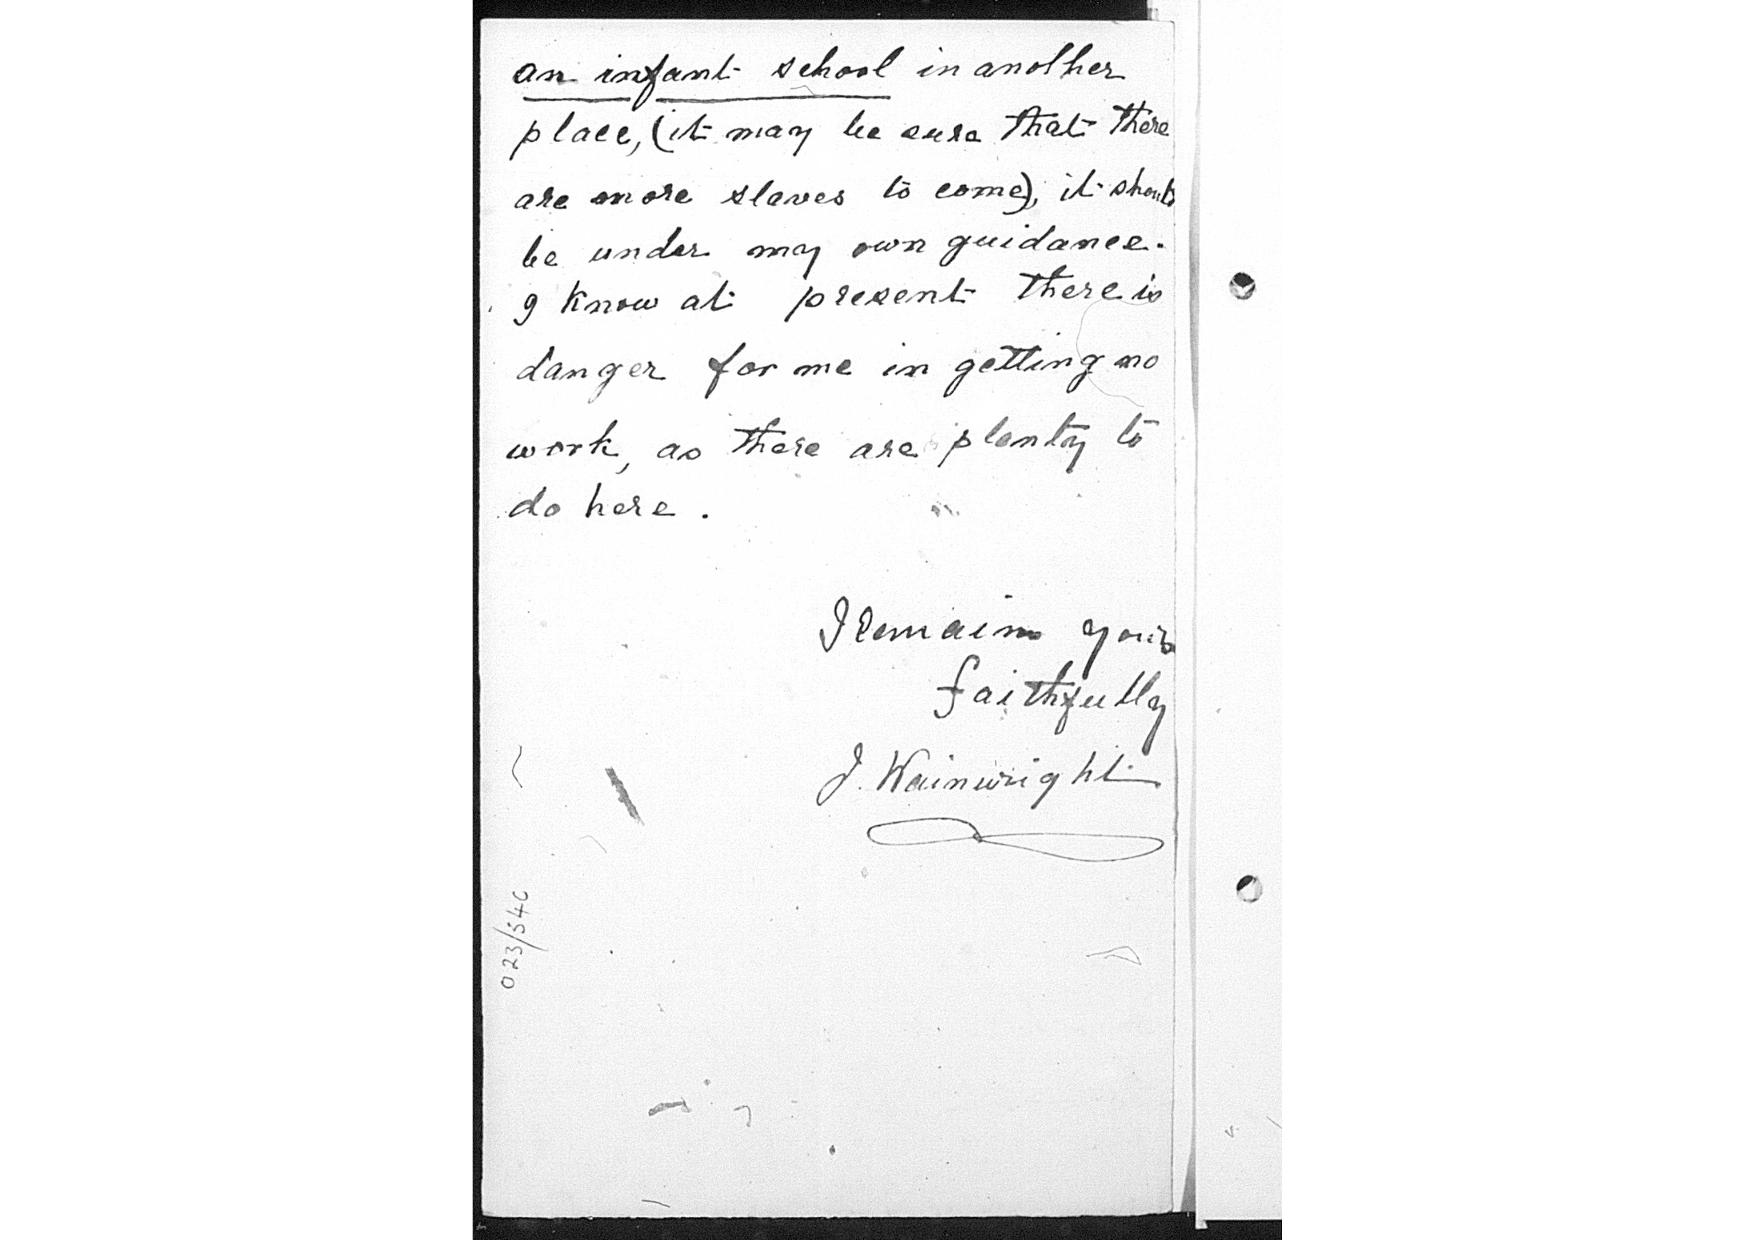 an infant school in another
place, (it may be sure that there
are more slaves to come), it should
be under my own guidance.
I know at present there is
danger for me in getting no
work, as there are plenty to
do here.
I remain yours
faithfully
J. Wainwright
023/54C